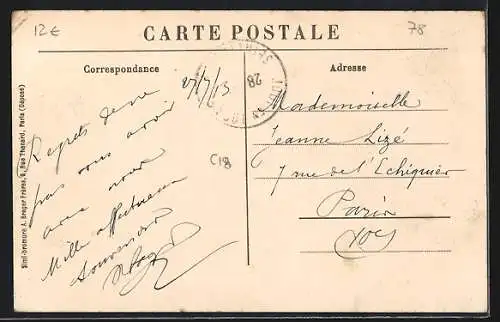 12€
78
CARTE POSTALE
Correspondance
Adresse
27/7/13
28
Regrets de ne
pas vous avoir
avec nous
Mille affectueux
souvenirs
C18
Mademoiselle
Jeanne Lizé
7 rue de l'Echiquier
Paris
Simili-bromure A. Breger Frères, 9, Rue Thénard, Paris (Déposé)